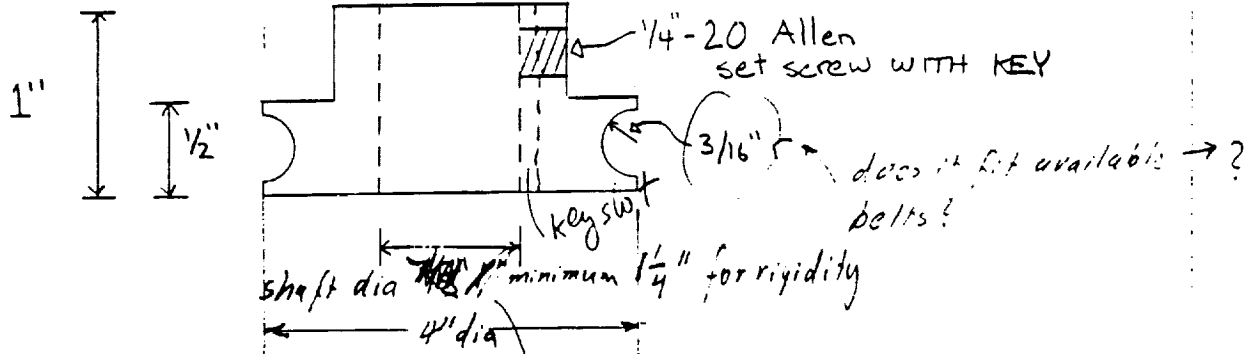 1/4"-20 Allen
set screw WITH KEY
1"
1/2"
3/16" r
does it fit available → ?
belts?
shaft dia 1" minimum 1 1/4" for rigidity
4" dia